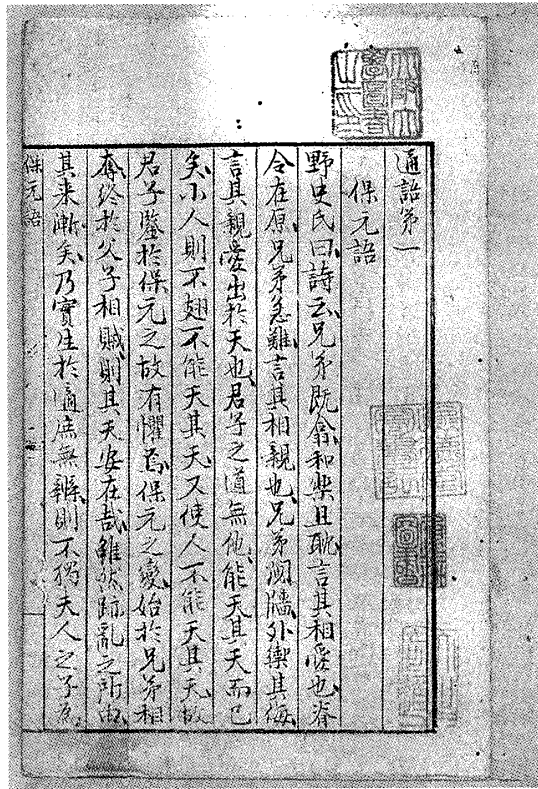 通語第一
保元語
野史氏曰詩云兄弟既翕和樂且耽言其相愛也脊
令在原兄弟急難言其相親也兄弟鬩牆外禦其侮
言其親愛出於天也君子之道無他能天其天而已
矣小人則不翅不能天其天又使人不能天其天故
君子鑒於保元之故有懼焉保元之變始於兄弟相
奪終於父子相賊則其天安在哉雖然跡亂之所由
其来漸矣乃實生於適庶無辨則不獨夫人之子為
保元語